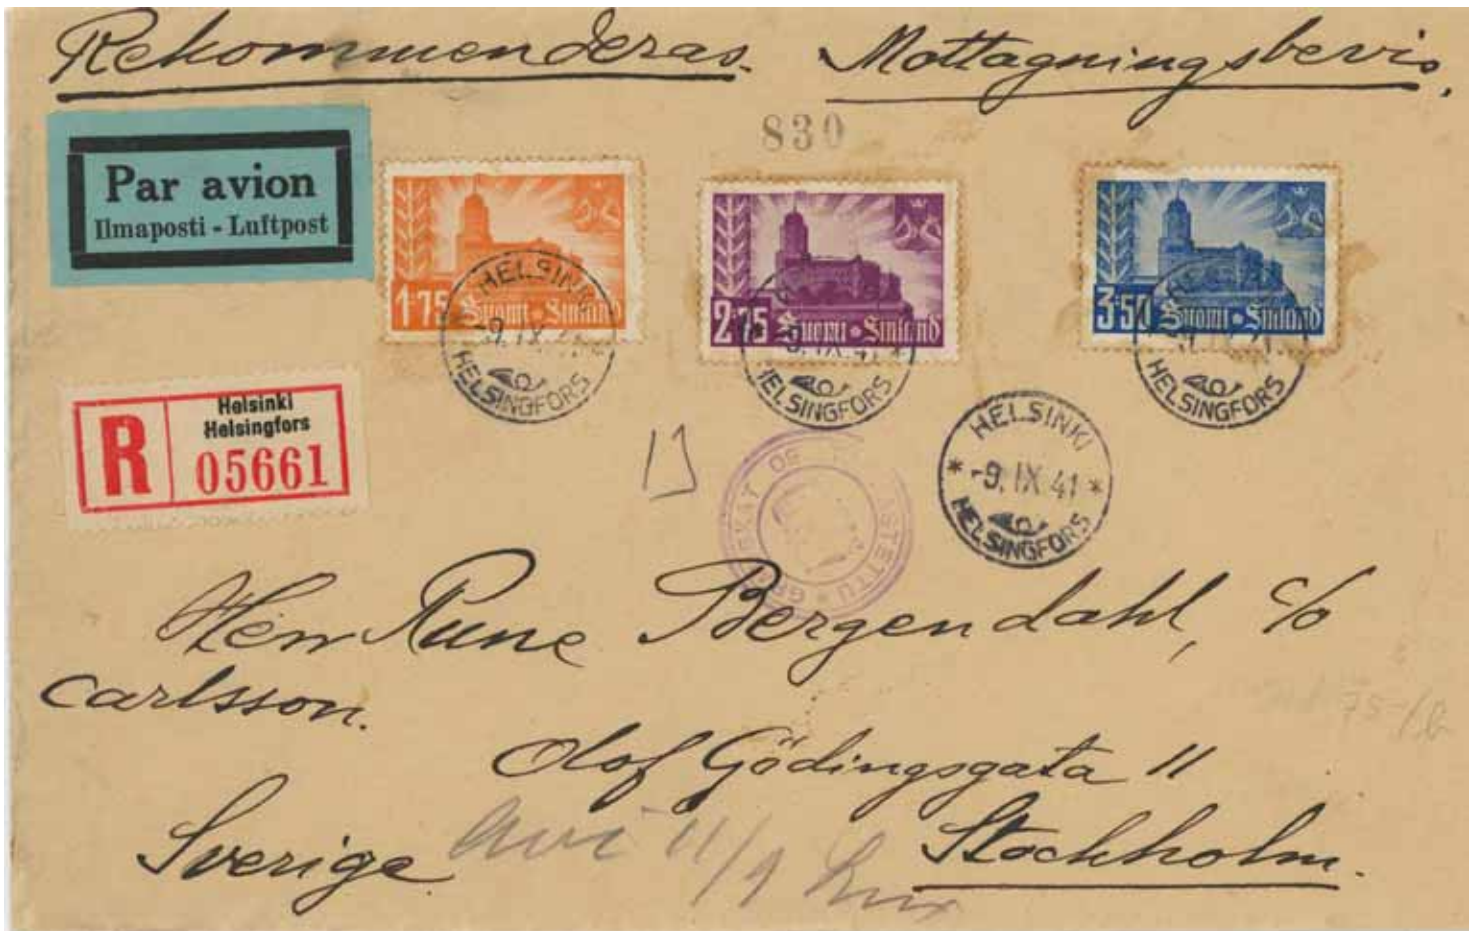 Rekommenderas. Mottagningsbevis.
830
Par avion
Ilmaposti - Luftpost
1·75 Suomi · Finland
2·75 Suomi · Finland
3·50 Suomi · Finland
HELSINKI
-9. IX
HELSINGFORS
-9. IX 41
HELSINGFORS
HELSINGFORS
R
Helsinki
Helsingfors
05661
HELSINKI
-9. IX 41
HELSINGFORS
Herr Rune Bergendahl, c/o
Carlsson.
Olof Gödingsgata 11
Sverige
Stockholm.
11/9